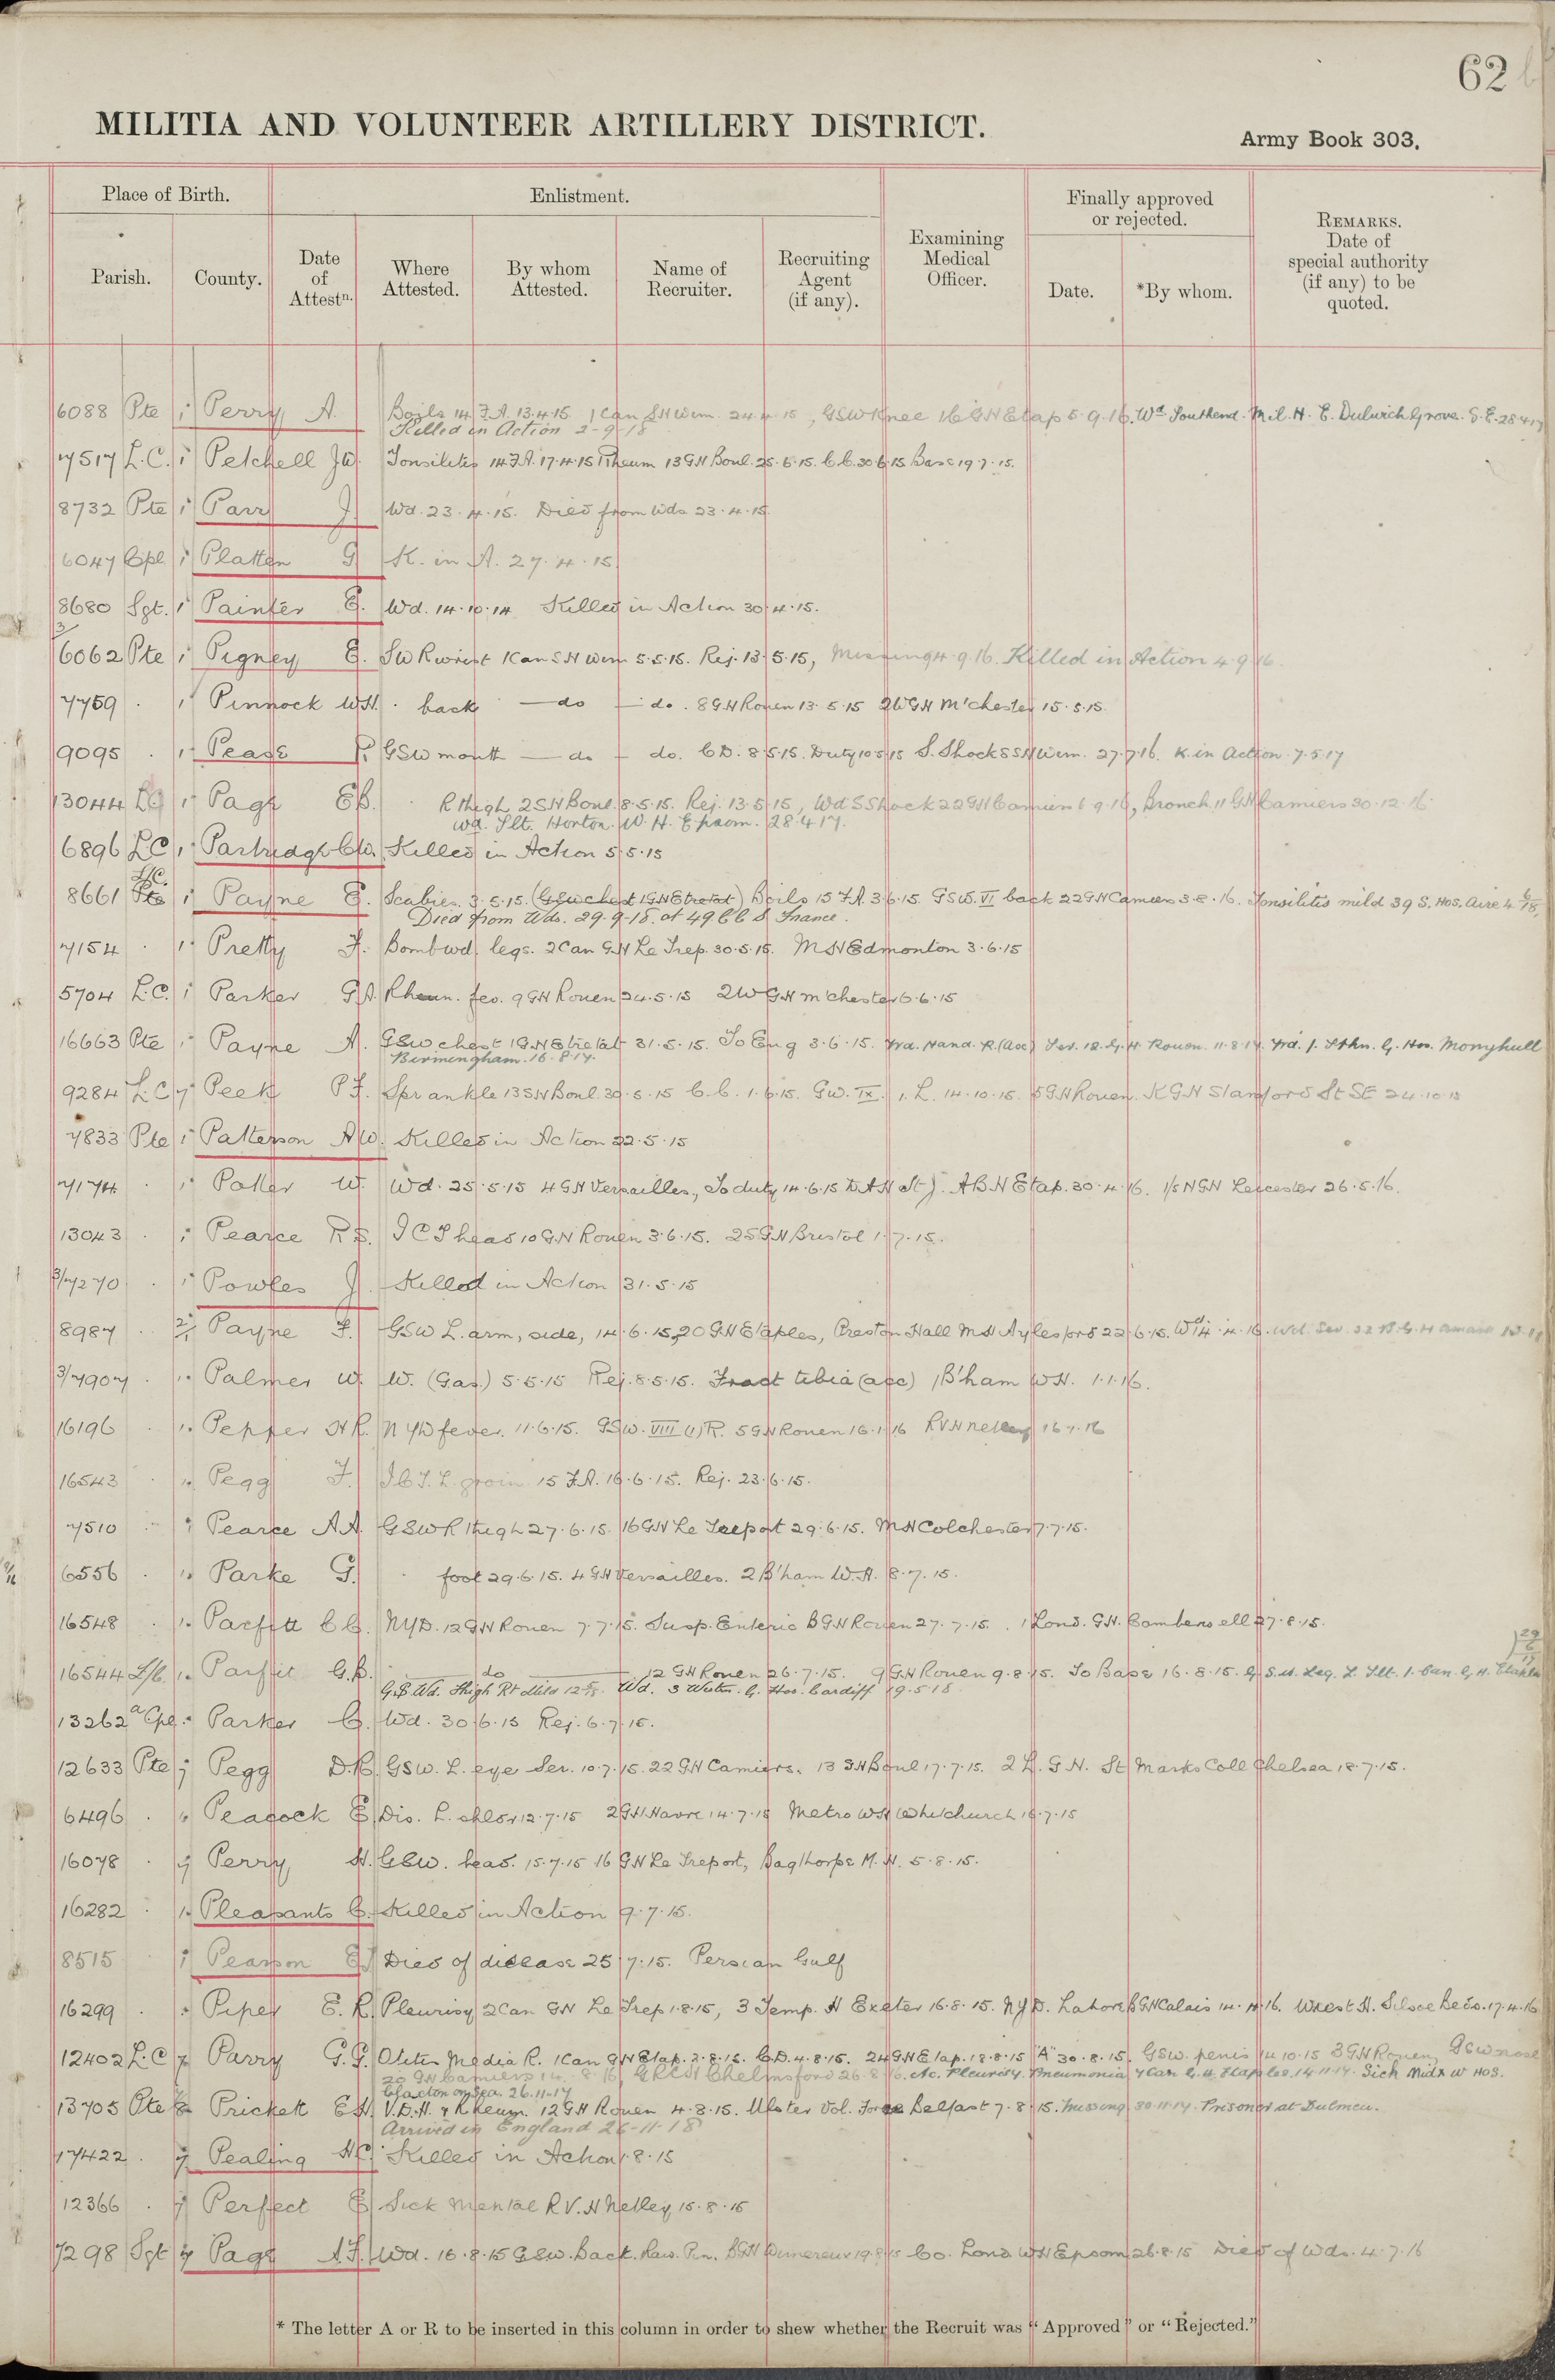 62
MILITIA AND VOLUNTEER ARTILLERY DISTRICT.
Army Book 303.
Place of Birth.
Enlistment.
Finally approved or rejected.
Parish.
County.
Date of Attestn.
Where Attested.
By whom Attested.
Name of Recruiter.
Recruiting Agent (if any).
Examining Medical Officer.
Date.
*By whom.
REMARKS. Date of special authority (if any) to be quoted.
6088 Pte 1 Perry A. Boils 14 F.A. 13.4.15 1 Can SH Wim. 24.4.15, GSW Knee 16 GH Etap 5.9.16. Wd Southend. Mil. H. E. Dulwich Grove. S.E. 28.4.17
Killed in Action 2-9-18
7517 L.C. 1 Petchell JW. Tonsilitis 14 F.A. 17.4.15 Rheum 13 GH Boul. 25.6.15. C.C. 30.6.15 Base 19.7.15.
8732 Pte 1 Parr J Wd. 23.4.15. Died from Wds 23.4.15
6047 Cpl 1 Platten G K. in A. 27.4.15
8680 Sgt. 1 Painter E. Wd. 14.10.14 Killed in Action 30.4.15.
3/6062 Pte 1 Pigney E. SW R wrist 1 Can SH Wim 5.5.15. Rej. 13.5.15, Missing 4.9.16. Killed in Action 4.9.16.
7759 . 1 Pinnock WH. . back — do — do. 8 GH Rouen 13.5.15 2WGH M'chester 15.5.15
9095 . 1 Pease P. GSW mouth — do — do. CD. 8.5.15. Duty 10.5.15 S. Shock 5 SH Wim. 27.7.16. K. in Action 7.5.17
13044 LC 1 Page EB. . R thigh 2 SH Boul. 8.5.15. Rej. 13.5.15, Wd S Shock 22 GH Camiers 6.9.16, Bronch 11 GH Camiers 30.12.16.
Wd. Slt. Horton. W. H. Epsom. 28.4.17.
6896 LC 1 Partridge CW. Killed in Action 5.5.15
8661 L/C. Pte 1 Payne E. Scabies. 3.5.15. (GSW chest 1 GH Etretat) Boils 15 F.A. 3.6.15. GSW. VI back 22 GH Camiers 3.8.16. Tonsilitis mild 39 S. Hos. Aire 4.6/18.
Died from Wds. 29.9.18. at 49 CCS France.
7154 . 1 Pretty F. Bomb wd. legs. 2 Can GH Le Trep. 30.5.15. MH Edmonton 3.6.15
5704 L.C. 1 Parker GA. Rheum. fev. 9 GH Rouen 24.5.15 2WGH M'chester 6.6.15
16663 Pte 1 Payne A. GSW chest 1 GH Etretat 31.5.15. To Eng 3.6.15. Wd. Hand. R. (Acc) Sev. 12. G. H. Rouen. 11.8.17. Wd. 1. Sthn. G. Hos. Monyhull
Birmingham. 16.8.17.
9284 L.C 7 Peek PF. Spr ankle 13 SH Boul. 30.5.15 C.C. 1.6.15. GW. IX. 1. L. 14.10.15. 5 GH Rouen. KGH Stamford St SE 24.10.15
7833 Pte 1 Patterson AW. Killed in Action 22.5.15
7174 . 1 Potter W. Wd. 25.5.15 4 GH Versailles, To duty 14.6.15 D.A.H St J. ABH Etap. 30.4.16. 1/5 NGH Leicester 26.5.16.
13043 . 1 Pearce RS. ICT head 10 GH Rouen 3.6.15. 2 SGH Bristol 1.7.15.
3/7270 . 1 Powles J. Killed in Action 31.5.15
8987 . 2/1 Payne F. GSW L. arm, side, 14.6.15, 20 GH Etaples, Preston Hall MH Aylesford 22.6.15. Wd 14.4.16.
3/7907 . 1 Palmer W. W. (Gas) 5.5.15 Rej. 8.5.15. Fract tibia (acc) 1 B'ham WH. 1.1.16.
16196 . 1 Pepper HR. NYD fever. 11.6.15. GSW. VIII (1) R. 5 GH Rouen 16.1.16 RVH Netley 16.7.16
16543 . 1 Pegg F. I.C.T. L groin 15 F.A. 19.6.15. Rej. 23.6.15.
7510 . 1 Pearce AA. GSW R thigh 27.6.15. 16 GH Le Treport 29.6.15. MH Colchester 7.7.15.
6556 . 1 Parke G. . foot 29.6.15. 4 GH Versailles. 2 B'ham W.H. 8.7.15.
16548 . 1 Parfitt CC. NYD. 12 GH Rouen 7.7.15. Susp. Enteric BGH Rouen 27.7.15. 1 Lond. GH. Camberwell 27.8.15.
16544 L/C. 1 Parfit G.B. — do — 12 GH Rouen 26.7.15. 9 GH Rouen 9.8.15. To Base 16.8.15. G.S.W. Leg. L Slt. 1. Can. G. H. Etaples
G.S. Wd. Thigh Rt Wd. 3 Westn. G. Hos. Cardiff 19.5.18.
13262 a/Cpl. Parker C. Wd. 30.6.15 Rej. 6.7.15.
12633 Pte 7 Pegg D.R. GSW. L. eye Sev. 10.7.15. 22 GH Camiers. 13 SH Boul 17.7.15. 2 L. G.H. St Marks Coll Chelsea 18.7.15.
6496 . 7 Peacock E. Dis. L. shldr 12.7.15 2 GH Havre 14.7.15 Metro WH Whichurch 16.7.15
16078 . 7 Perry H. GSW. head. 15.7.15 16 GH Le Treport, Bagthorpe M.H. 5.8.15.
16282 . 1 Pleasants C. Killed in Action 9.7.15.
8515 1 Pearson EJ Died of disease 25.7.15. Persian Gulf
16299 . Piper E.R. Pleurisy 2 Can GH Le Trep 1.8.15, 3 Temp. H Exeter 16.8.15. NYD. Lahore BGH Calais 14.4.16. Wrest H. Silsoe Beds. 17.4.16
12402 L.C 7 Parry G.G. Otitis Media R. 1 Can GH Etap. 2.8.15. CD. 4.8.15. 24 GH Etap. 18.8.15 "A" 30.8.15. GSW. penis 14.10.15 3 GH Rouen GSW nose
20 GH Camiers 14.8.16, Chelmsford 26.8.16. Ac. Pleurisy. Pneumonia 7 Can G. H. Etaples. 14.11.17. Sick Midx W Hos.
Clacton on Sea. 26.11.17
13705 Pte Prickett EH V.D.H. & Rheum. 12 GH Rouen 4.8.15. Ulster Vol. Force Belfast 7.8.15. Missing 30.11.17. Prisoner at Dulmen.
Arrived in England 26-11-18
17422 . 7 Pealing HC. Killed in Action 1.8.15
12366 . 7 Perfect E Sick Mental RV.H Netley 15.8.15
7298 Sgt 7 Page A.F. Wd. 16.8.15 GSW. Back. BGH Wimereux 19.8.15 Co. Lond WH Epsom 26.8.15 Died of Wds. 4.7.16
* The letter A or R to be inserted in this column in order to shew whether the Recruit was "Approved" or "Rejected."